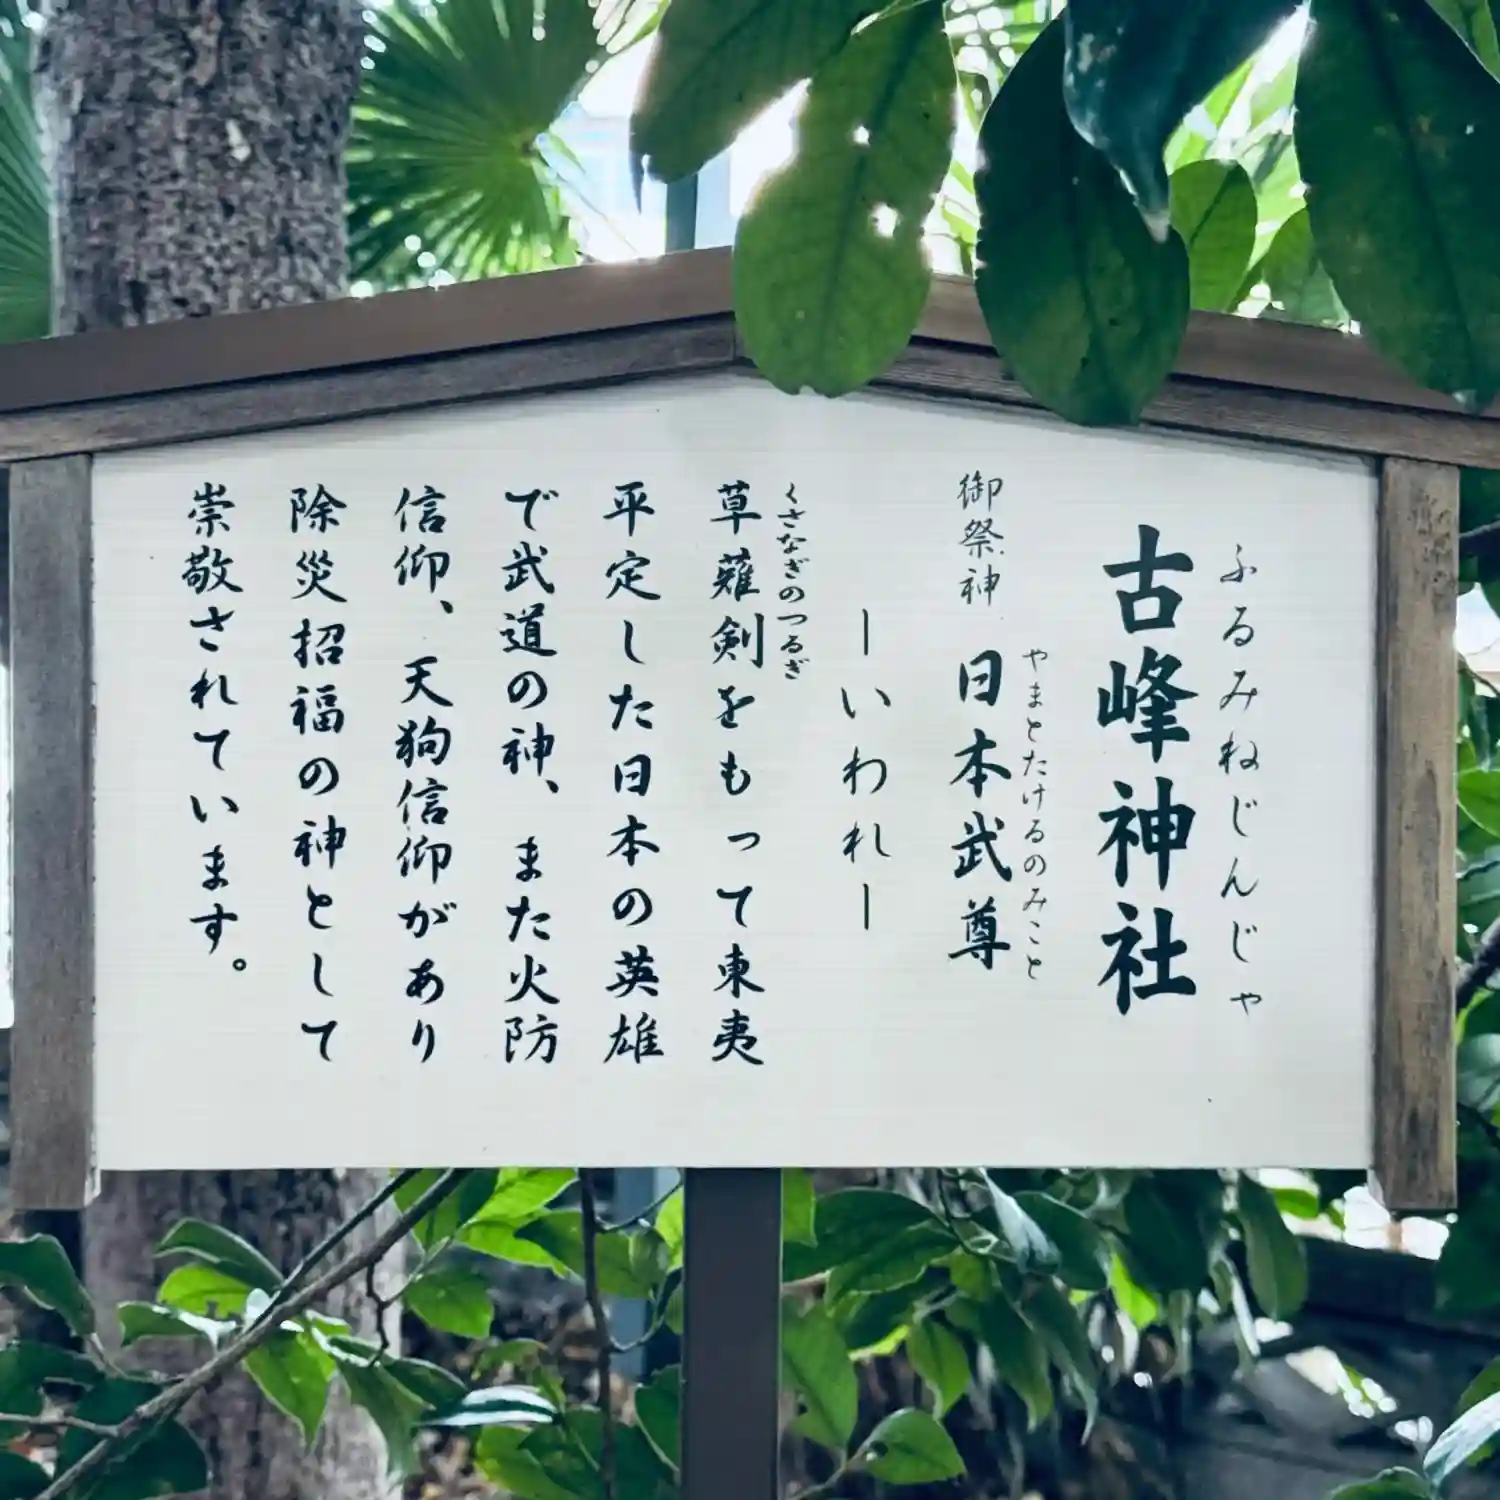 ふるみねじんじゃ
古峰神社
やまとたけるのみこと
御祭神 日本武尊
ーいわれー
くさなぎのつるぎ
草薙剣をもって東夷
平定した日本の英雄
で武道の神、また火防
信仰、天狗信仰があり
除災招福の神として
崇敬されています。